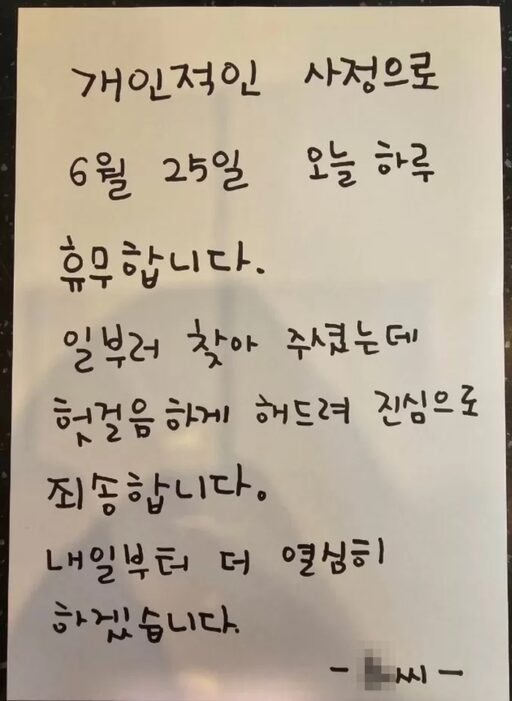 개인적인 사정으로
6월 25일 오늘 하루
휴무합니다.
일부러 찾아 주셨는데
헛걸음하게 해드려 진심으로
죄송합니다.
내일부터 더 열심히
하겠습니다.
- 씨 -